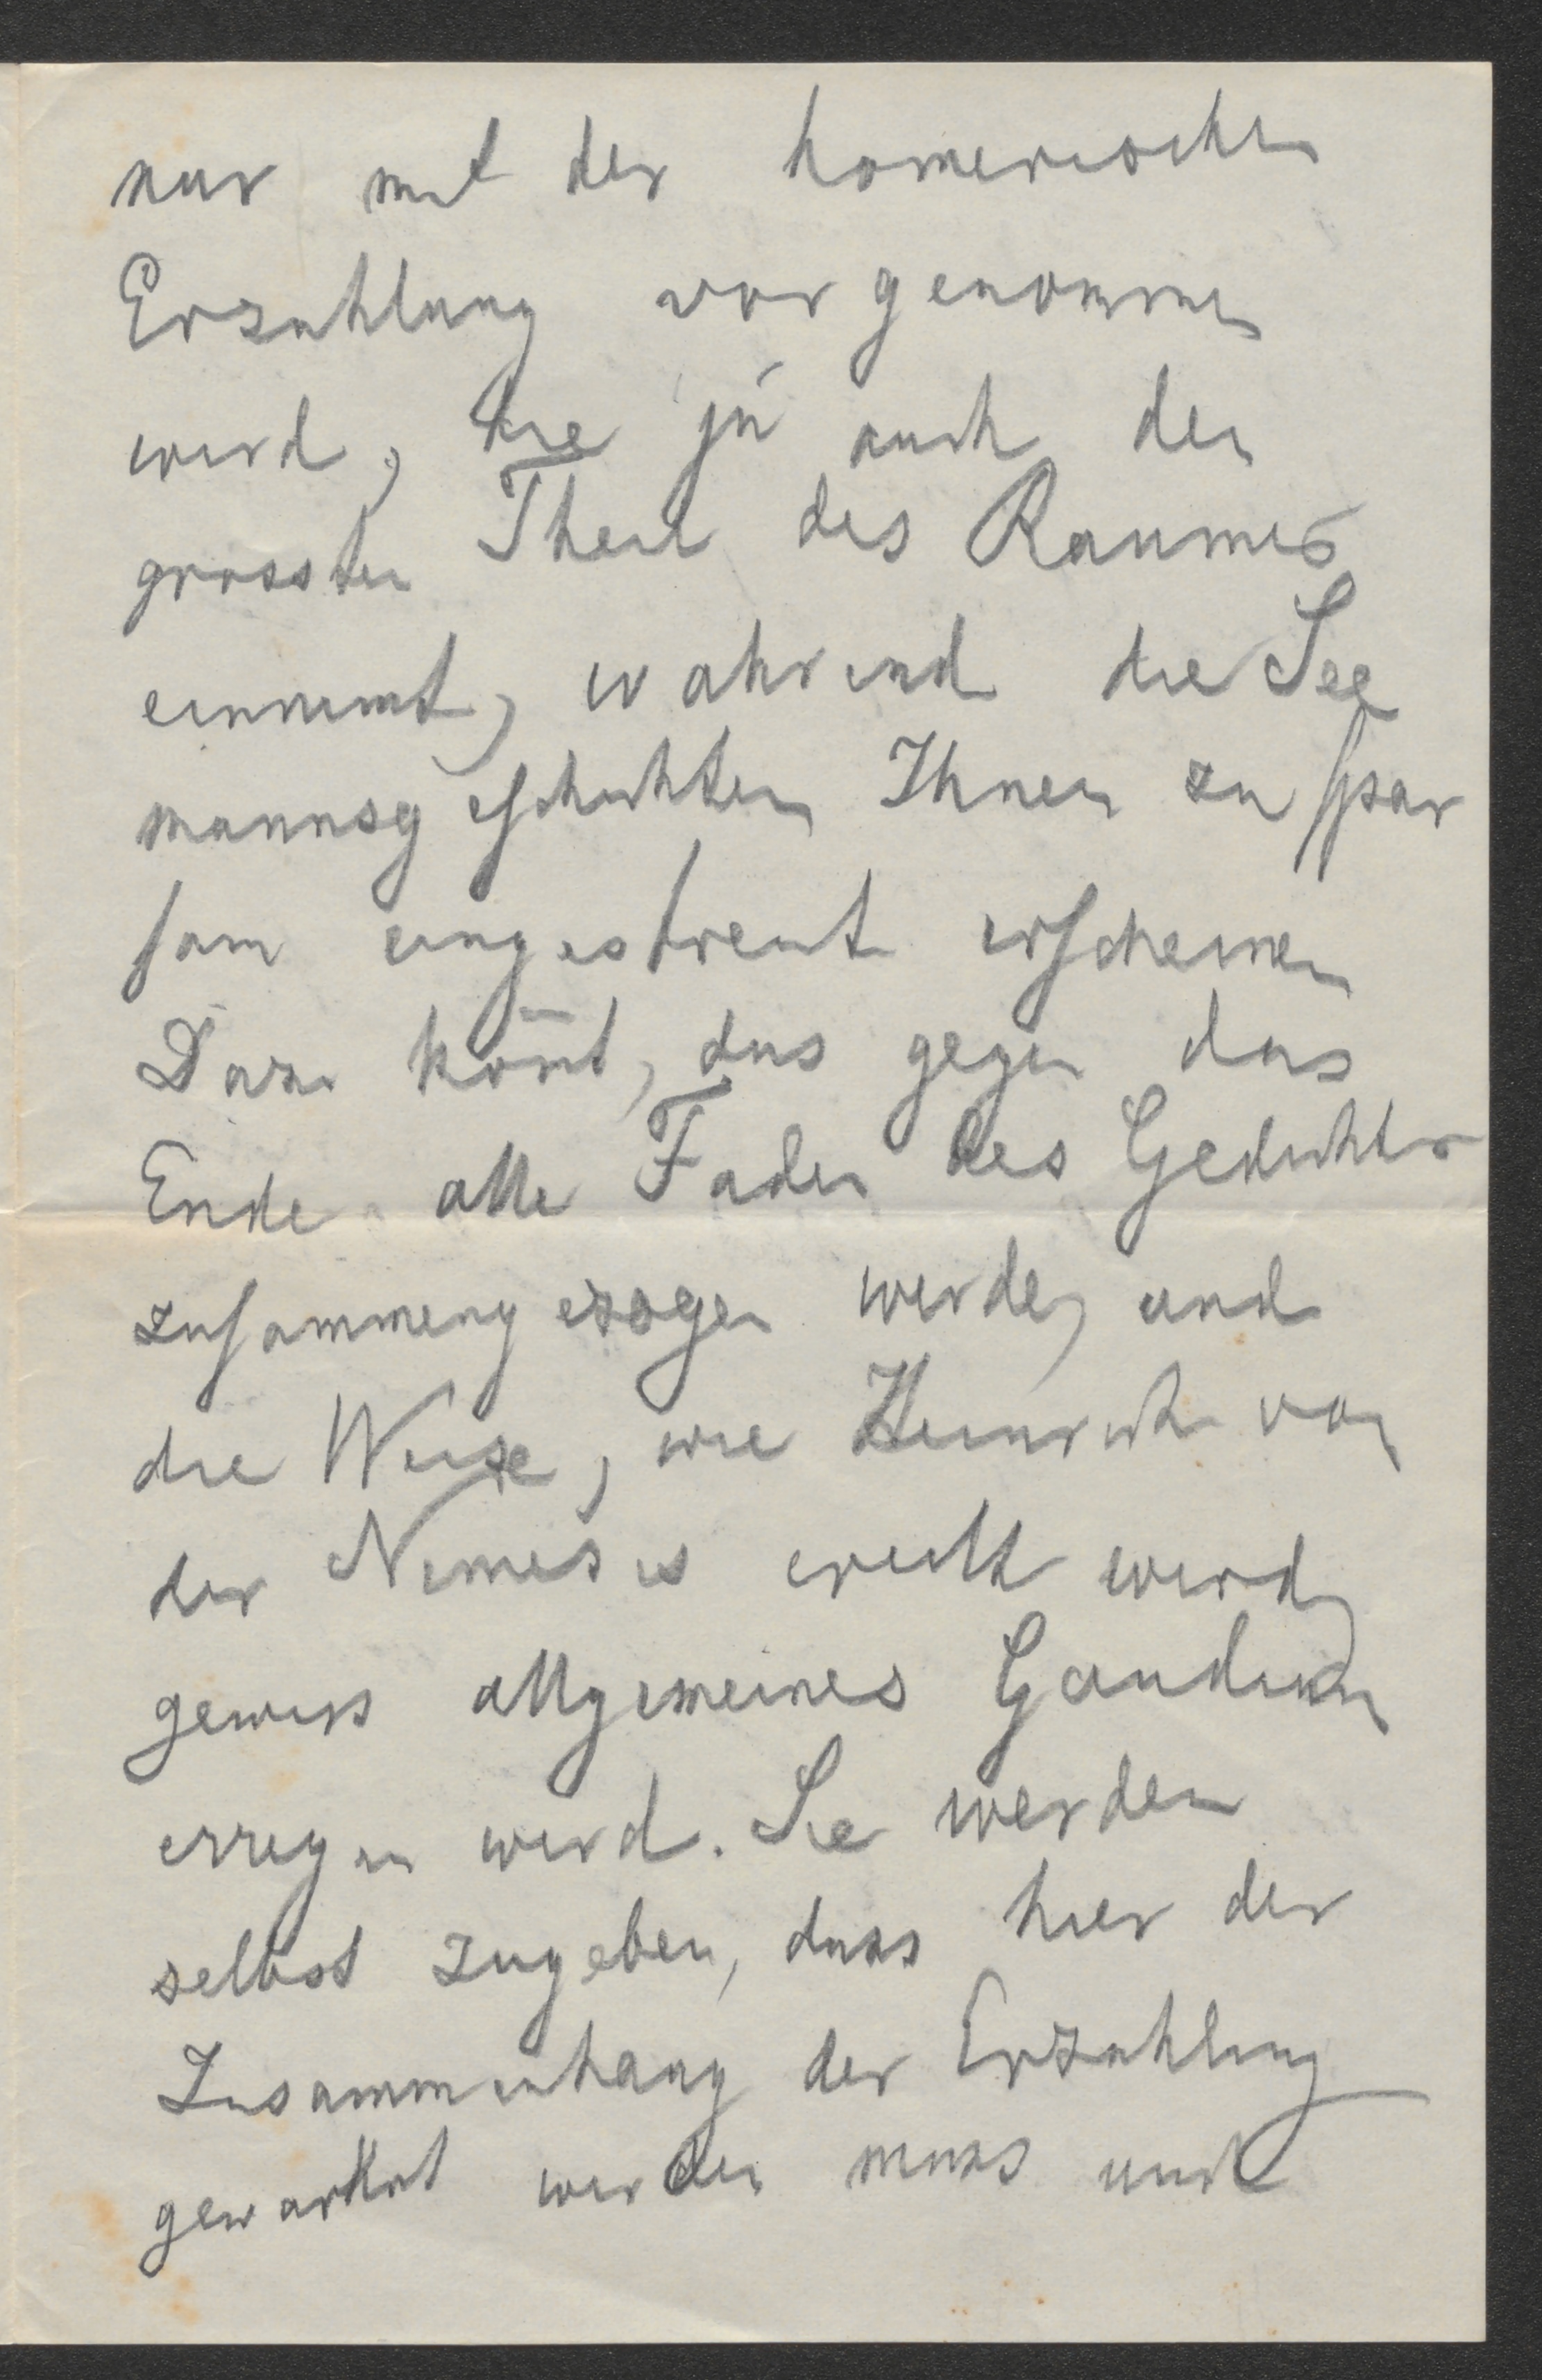 nur mit der homerischen
Erzahlung vorgenommen
wird, die ja auch den
grossten Theil des Raumes
einnimt, wahrend die See
mannsgeschichten Ihnen zu spar
sam eingestreut erscheinen
Dazu kom̅t, das gegen das
Ende alle Faden des Gedichtes
zusammengezogen werden, und
die Weise, wie Heinrich von
der Nemesis ereilt wird,
gewiss allgemeines Gaudium
erregen wird. Sie werden
selbst zugeben, dass hier der
Zusammenhang der Erzahlung
gewahrt werden muss und